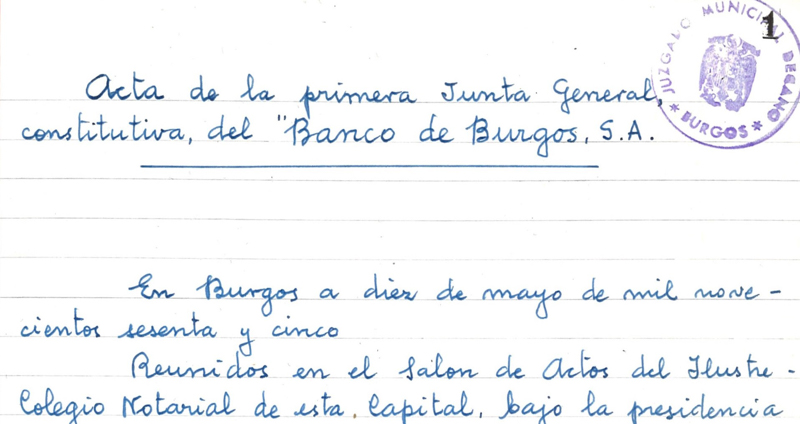 1
JUZGADO MUNICIPAL DECANO
* BURGOS *
Acta de la primera Junta General,
constitutiva, del "Banco de Burgos, S.A.
En Burgos a diez de mayo de mil nove-
cientos sesenta y cinco
Reunidos en el Salon de Actos del Ilustre-
Colegio Notarial de esta Capital, bajo la presidencia